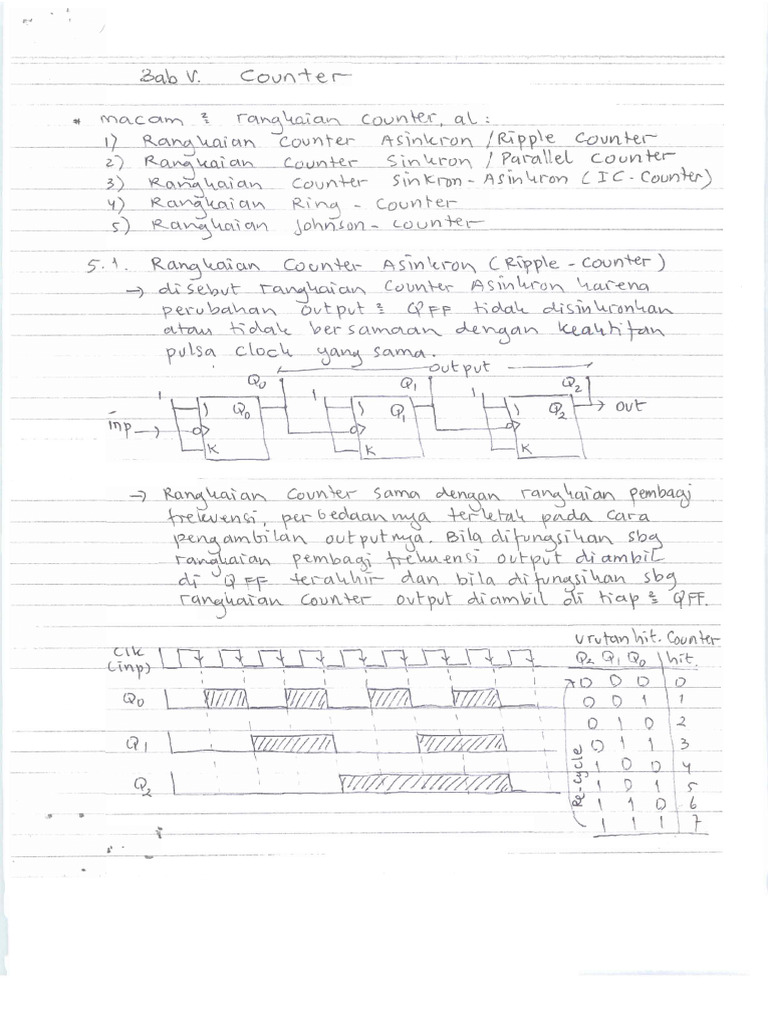 Bab V. Counter
* macam ² rangkaian counter, al:
1) Rangkaian Counter Asinkron / Ripple Counter
2) Rangkaian Counter Sinkron / Parallel Counter
3) Rangkaian Counter Sinkron-Asinkron (IC-Counter)
4) Rangkaian Ring - Counter
5) Rangkaian Johnson-Counter
5.1. Rangkaian Counter Asinkron (Ripple-Counter)
→ disebut rangkaian Counter Asinkron karena
perubahan output ² QFF tidak disinkronkan
atau tidak bersamaan dengan keaktifan
pulsa clock yang sama.
output
Q0 Q1 Q2
1 J Q0 1 J Q1 1 J Q2 → out
inp →
K K K
→ Rangkaian Counter sama dengan rangkaian pembagi
frekuensi, perbedaannya terletak pada cara
pengambilan outputnya. Bila difungsikan sbg
rangkaian pembagi frekuensi output diambil
di QFF terakhir dan bila difungsikan sbg
rangkaian Counter output diambil di tiap ² QFF.
Clk
(inp)
Q0
Q1
Q2
Urutan hit. Counter
Q2 Q1 Q0 hit.
0 0 0 0
0 0 1 1
0 1 0 2
0 1 1 3
1 0 0 4
1 0 1 5
1 1 0 6
1 1 1 7
Re-cycle